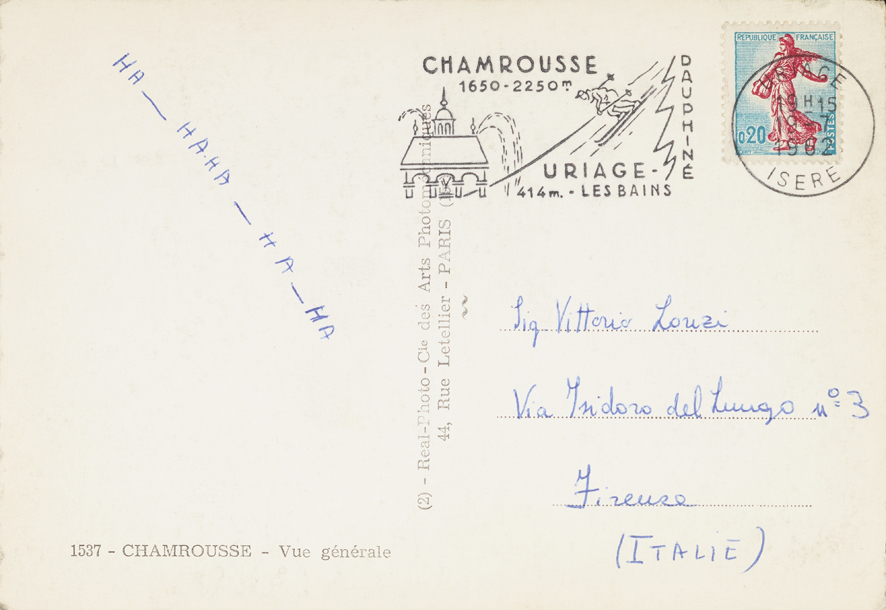 HA — HA.HA — HA — HA
CHAMROUSSE
1650-2250m
DAUPHINÉ
URIAGE-
414m.-LES BAINS
REPUBLIQUE FRANÇAISE
0,20
POSTES
URIAGE
19H15
19-7
1962
ISERE
(2) - Real-Photo - Cie des Arts Photomécaniques
44, Rue Letellier - PARIS
Sig. Vittorio Lonzi
Via Isidoro del Lungo nº 3
Firenze
(ITALIE)
1537 - CHAMROUSSE - Vue générale